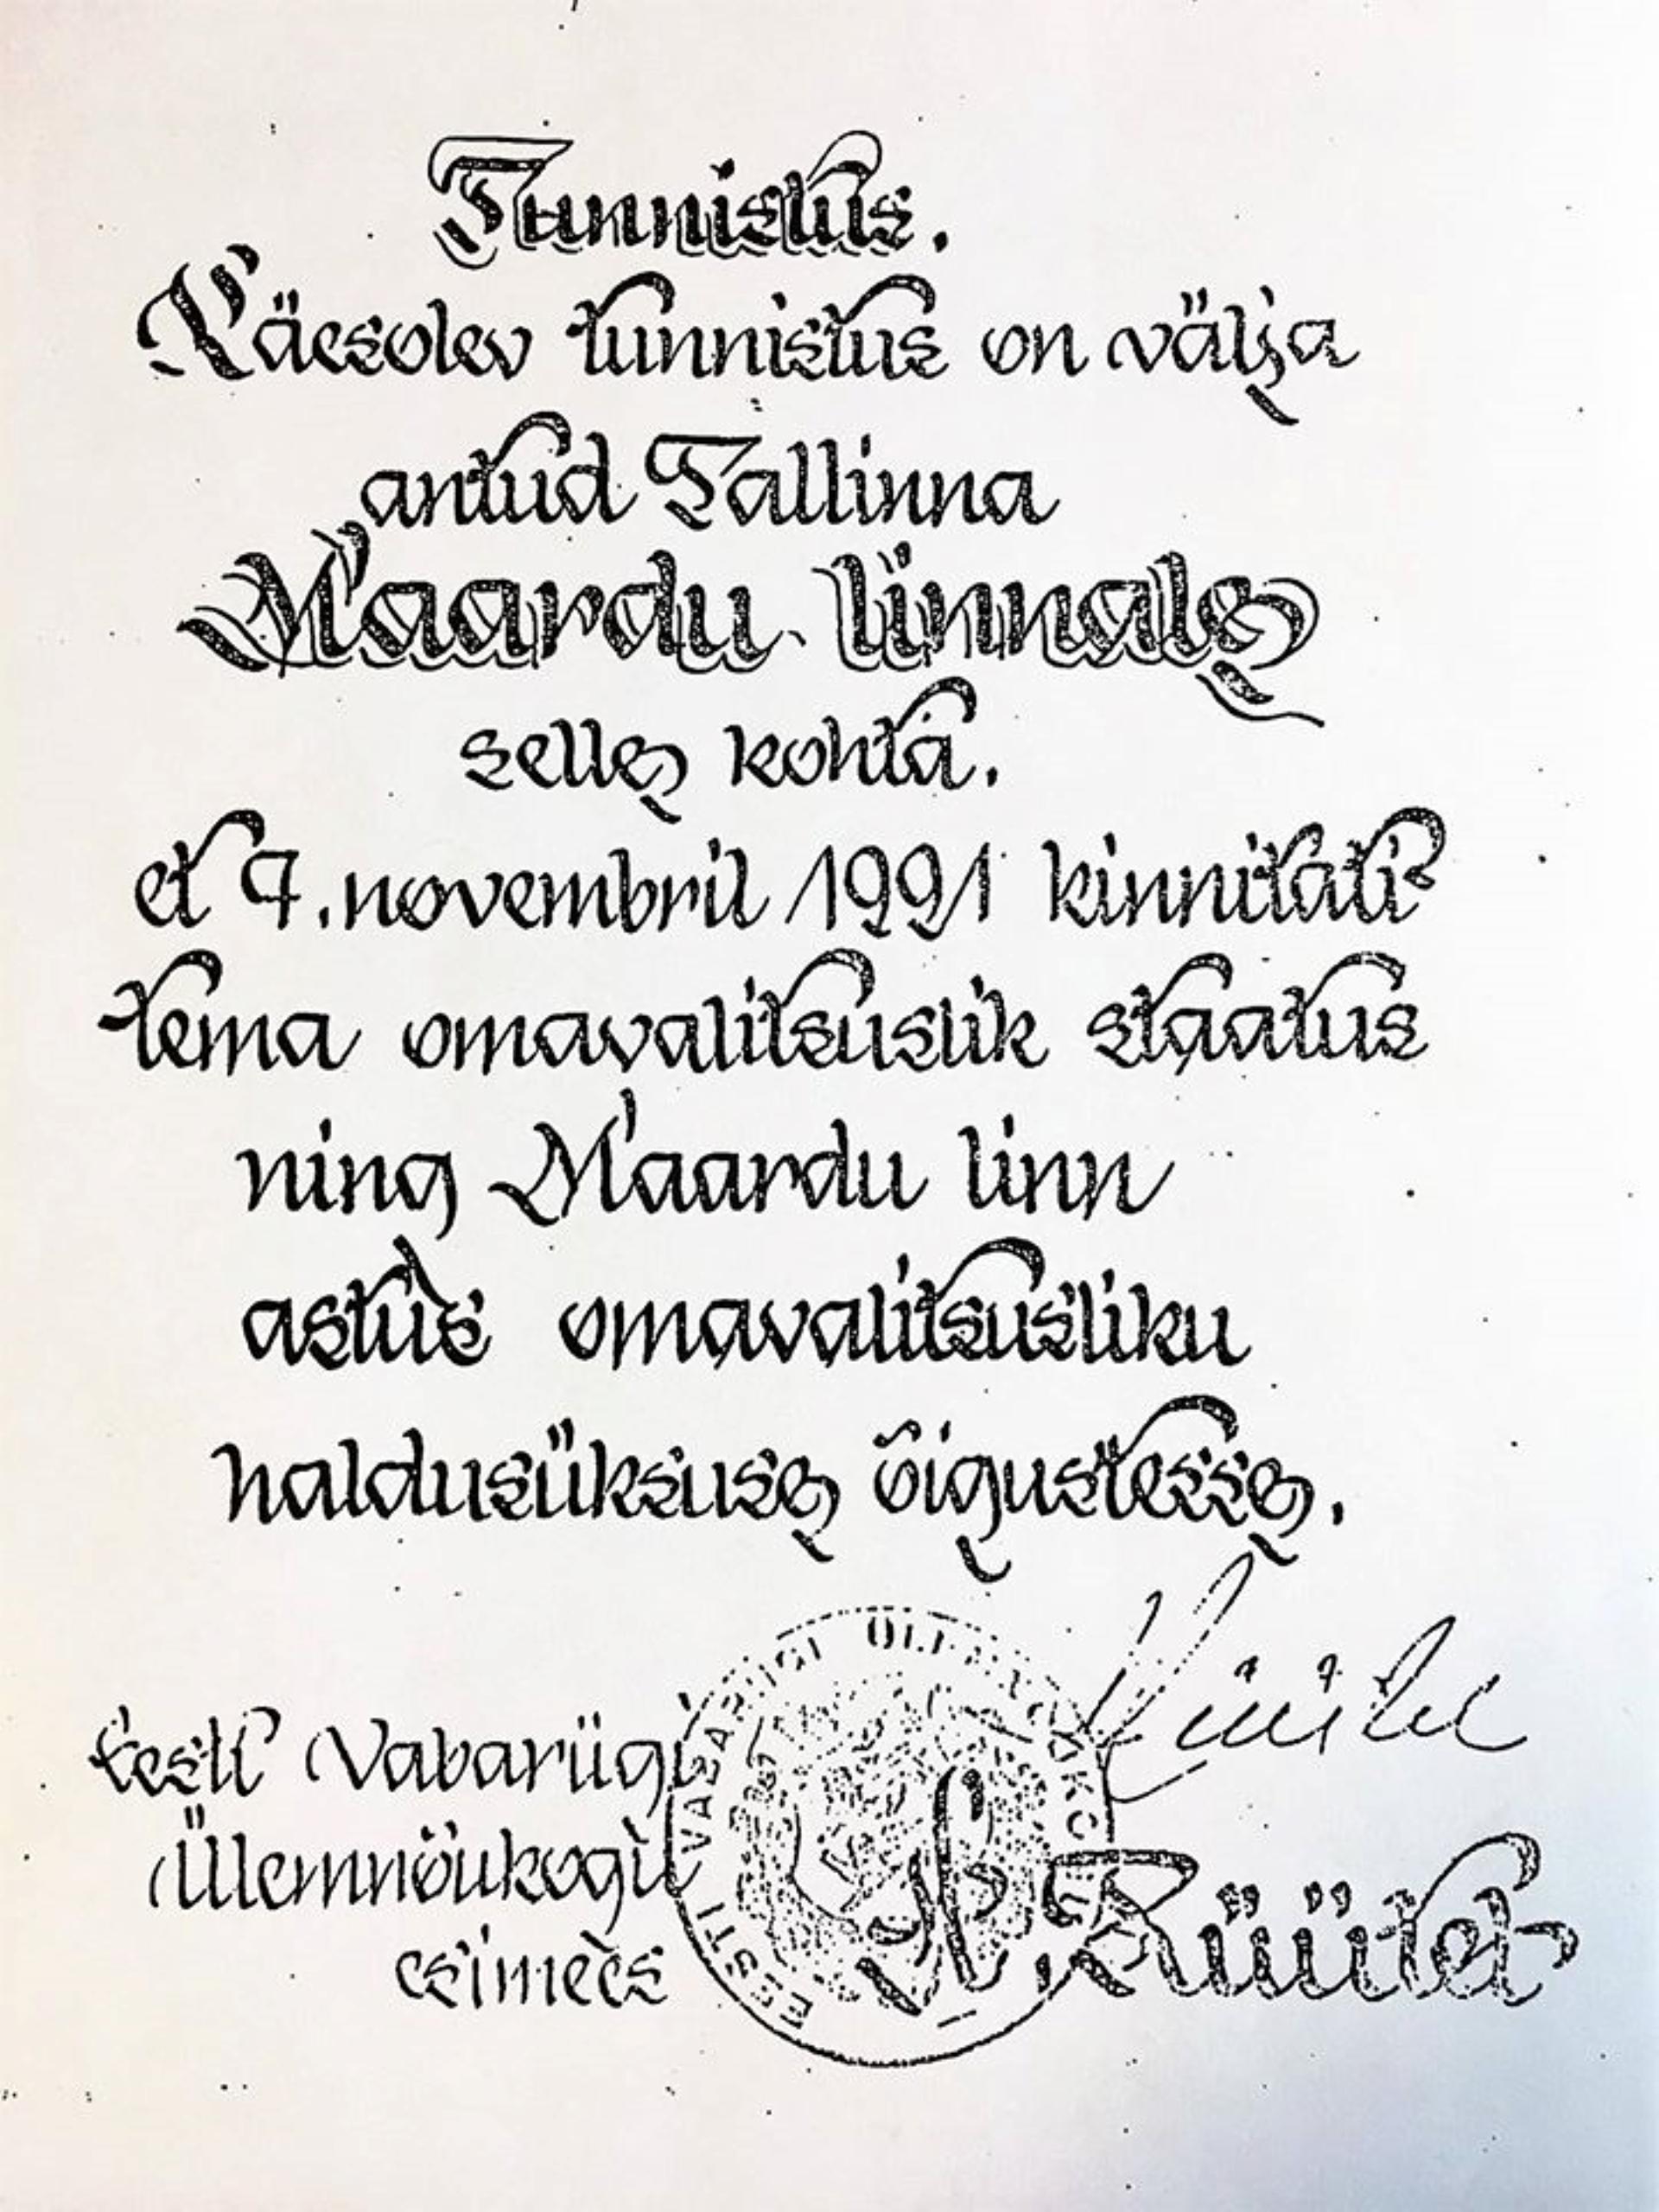 Tunnistus.
Käesolev tunnistus on välja
antud Tallinna
Maardu linnale
selle kohta.
et 7. novembril 1991 kinnitati
tema omavalitsuslik staatus
ning Maardu linn
astus omavalitsusliku
haldusüksuse õigustesse.
Eesti Vabariigi
Ülemnõukogu
esimees
A. Rüütel
EESTI VABARIIGI